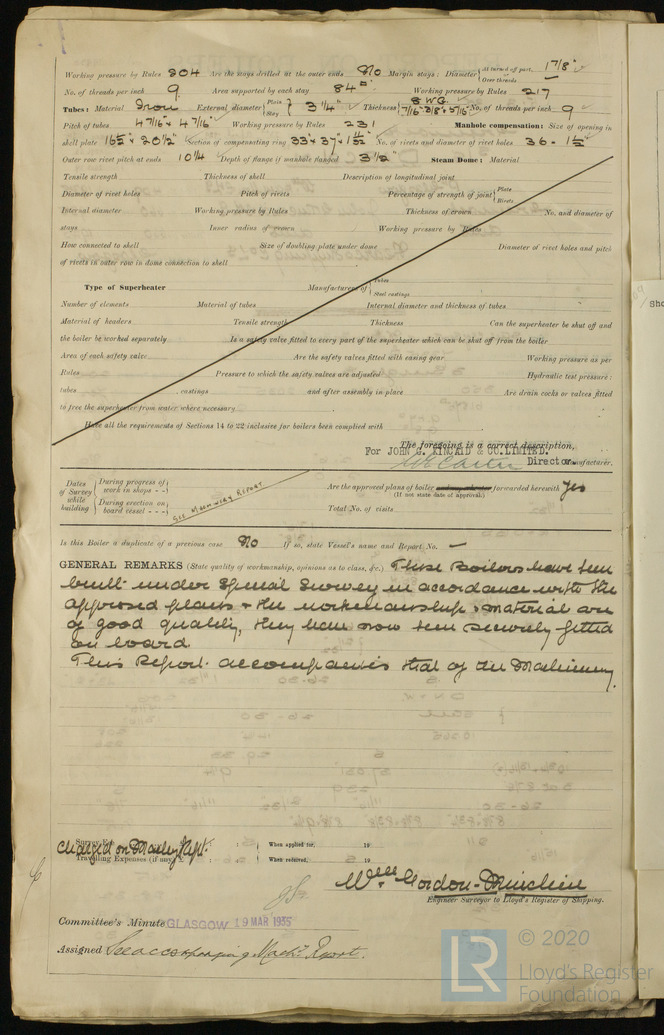 Working pressure by Rules 204 Are the stays drilled at the outer ends No Margin stays: Diameter { At turned off part, 1 7/8" Over threads
No. of threads per inch 9 Area supported by each stay 84 □" Working pressure by Rules 217
Tubes: Material Iron External diameter { Plain Stay } 3 1/4" Thickness { 8 W.G. 7/16" 3/8" & 5/16" No. of threads per inch 9
Pitch of tubes 4 7/16" x 4 7/16" Working pressure by Rules 231 Manhole compensation: Size of opening in
shell plate 16 1/2" x 20 1/2" Section of compensating ring 33" x 37" x 1 11/32" No. of rivets and diameter of rivet holes 36 - 1 1/2"
Outer row rivet pitch at ends 10 1/4 Depth of flange if manhole flanged 3 1/2" Steam Dome: Material
Tensile strength Thickness of shell Description of longitudinal joint
Diameter of rivet holes Pitch of rivets Percentage of strength of joint { Plate Rivets
Internal diameter Working pressure by Rules Thickness of crown No. and diameter of
stays Inner radius of crown Working pressure by Rules
How connected to shell Size of doubling plate under dome Diameter of rivet holes and pitch
of rivets in outer row in dome connection to shell
Type of Superheater Manufacturers of { Tubes Steel castings
Number of elements Material of tubes Internal diameter and thickness of tubes
Material of headers Tensile strength Thickness Can the superheater be shut off and
the boiler be worked separately Is a safety valve fitted to every part of the superheater which can be shut off from the boiler
Area of each safety valve Are the safety valves fitted with easing gear Working pressure as per
Rules Pressure to which the safety valves are adjusted Hydraulic test pressure:
tubes , castings and after assembly in place Are drain cocks or valves fitted
to free the superheater from water where necessary
Have all the requirements of Sections 14 to 22 inclusive for boilers been complied with
The foregoing is a correct description,
For JOHN G. KINCAID & CO. LIMITED.
Director. Manufacturer.
Dates of Survey while building { During progress of work in shops - - During erection on board vessel - - -
SEE MACHINERY REPORT
Are the approved plans of boiler forwarded herewith Yes
(If not state date of approval.)
Total No. of visits
Is this Boiler a duplicate of a previous case No If so, state Vessel's name and Report No. —
GENERAL REMARKS (State quality of workmanship, opinions as to class, &c.) These Boilers have been
built under Special Survey in accordance with the
approved plans & the workmanship & material are
of good quality, they have now been securely fitted
on board.
This Report accompanies that of the Machinery.
Survey Fee
Charged on Machy Rept.
When applied for, 19
Travelling Expenses (if any) £ When received, 19
Wm Gordon-Minchin
Engineer Surveyor to Lloyd's Register of Shipping.
Committee's Minute GLASGOW 19 MAR 1935
Assigned See accompanying Machy Report.
LR © 2020
Lloyd's Register
Foundation